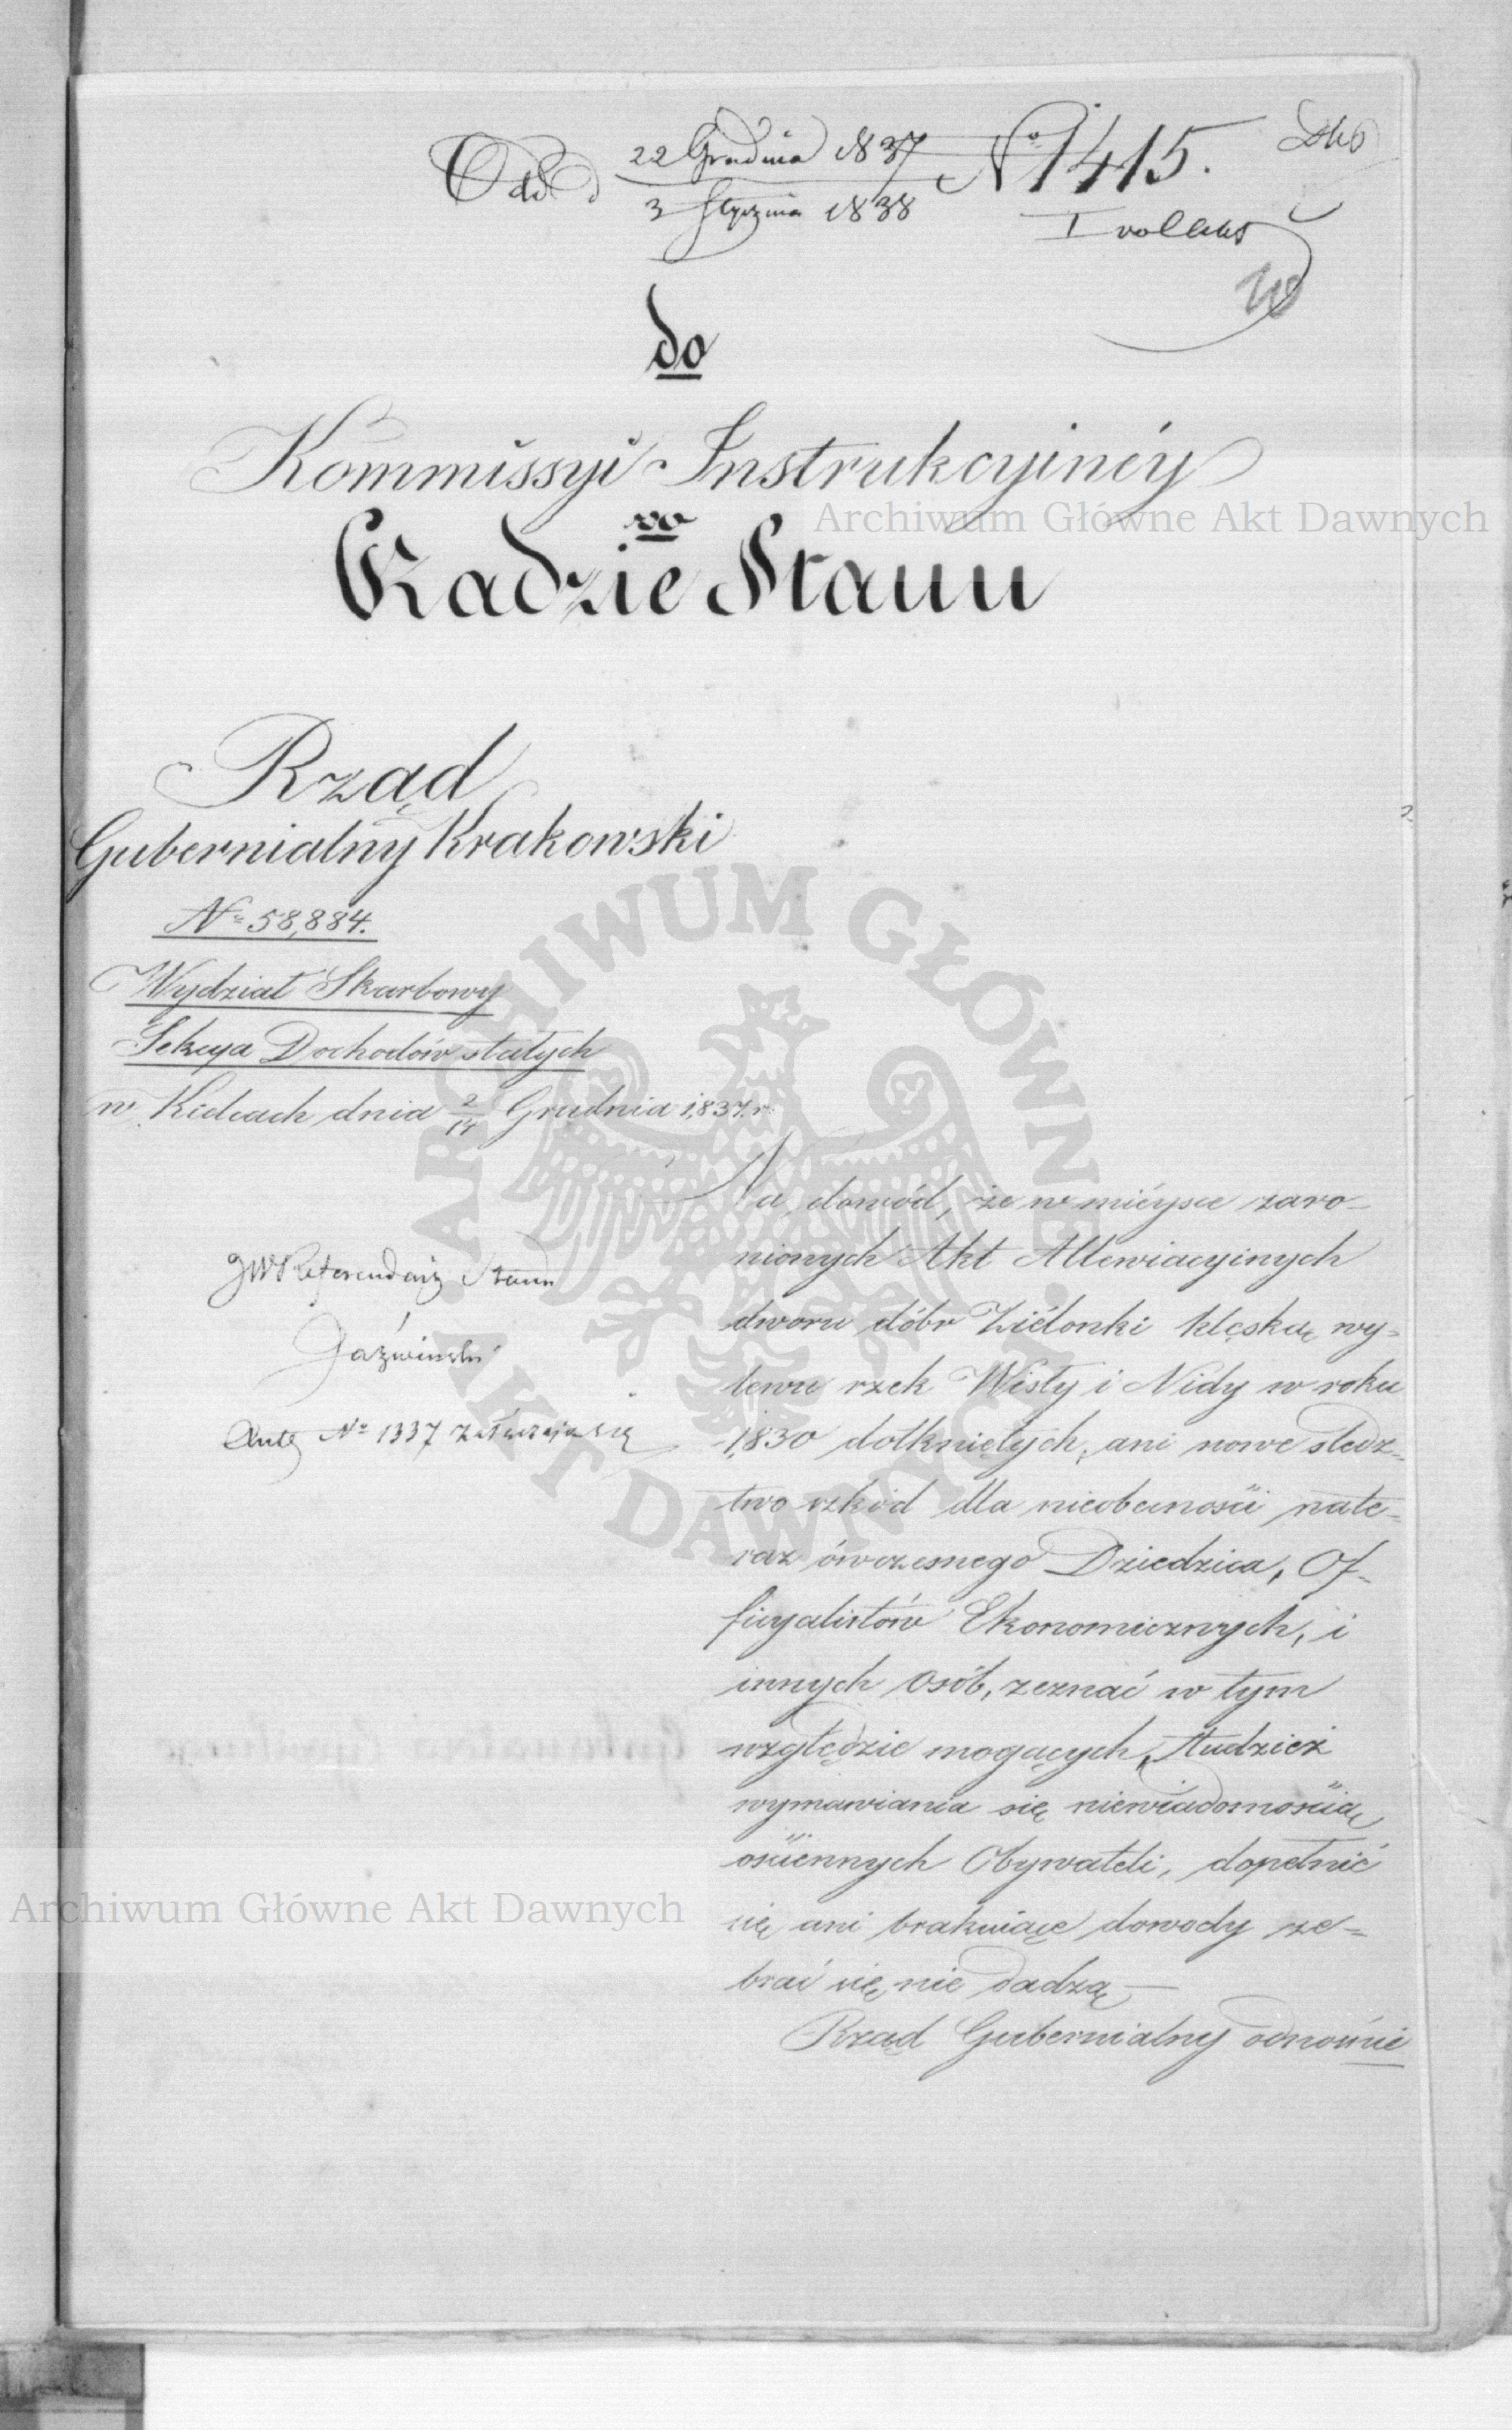 Odd 22 Grudnia 1837 No 1415.
3 Stycznia 1838
I vol Akt
do
Kommissyi Instrukcyinéy
w
Radzie Stanu
Rząd
Gubernialny Krakowski
No 58,884.
Wydział Skarbowy
Sekcya Dochodów stałych
w Kielcach dnia 2/14 Grudnia 1,837. r.
JW Referendarz Stanu
Jaźwiński
Ante No 1337 załączaią się
Na dowód, że w mieysce zaro-
nionych Akt Allewiacyinych
dworu dóbr Zielonki klęską wy-
lewu rzek Wisły i Nidy w roku
1,830 dotkniętych, ani nowe śledz-
two szkód dla nieobecności nate-
raz ówczesnego Dziedzica, Of-
ficyalistów Ekonomicznych, i
innych osób, zeznać w tym
względzie mogących, tudzież
wymawiania się niewiadomością
ościennych Obywateli, dopełnić
się ani brakuiące dowody ze-
brać się nie dadzą —
Rząd Gubernialny odnośnie
Archiwum Główne Akt Dawnych
ARCHIWUM GŁÓWNE AKT DAWNYCH
Archiwum Główne Akt Dawnych